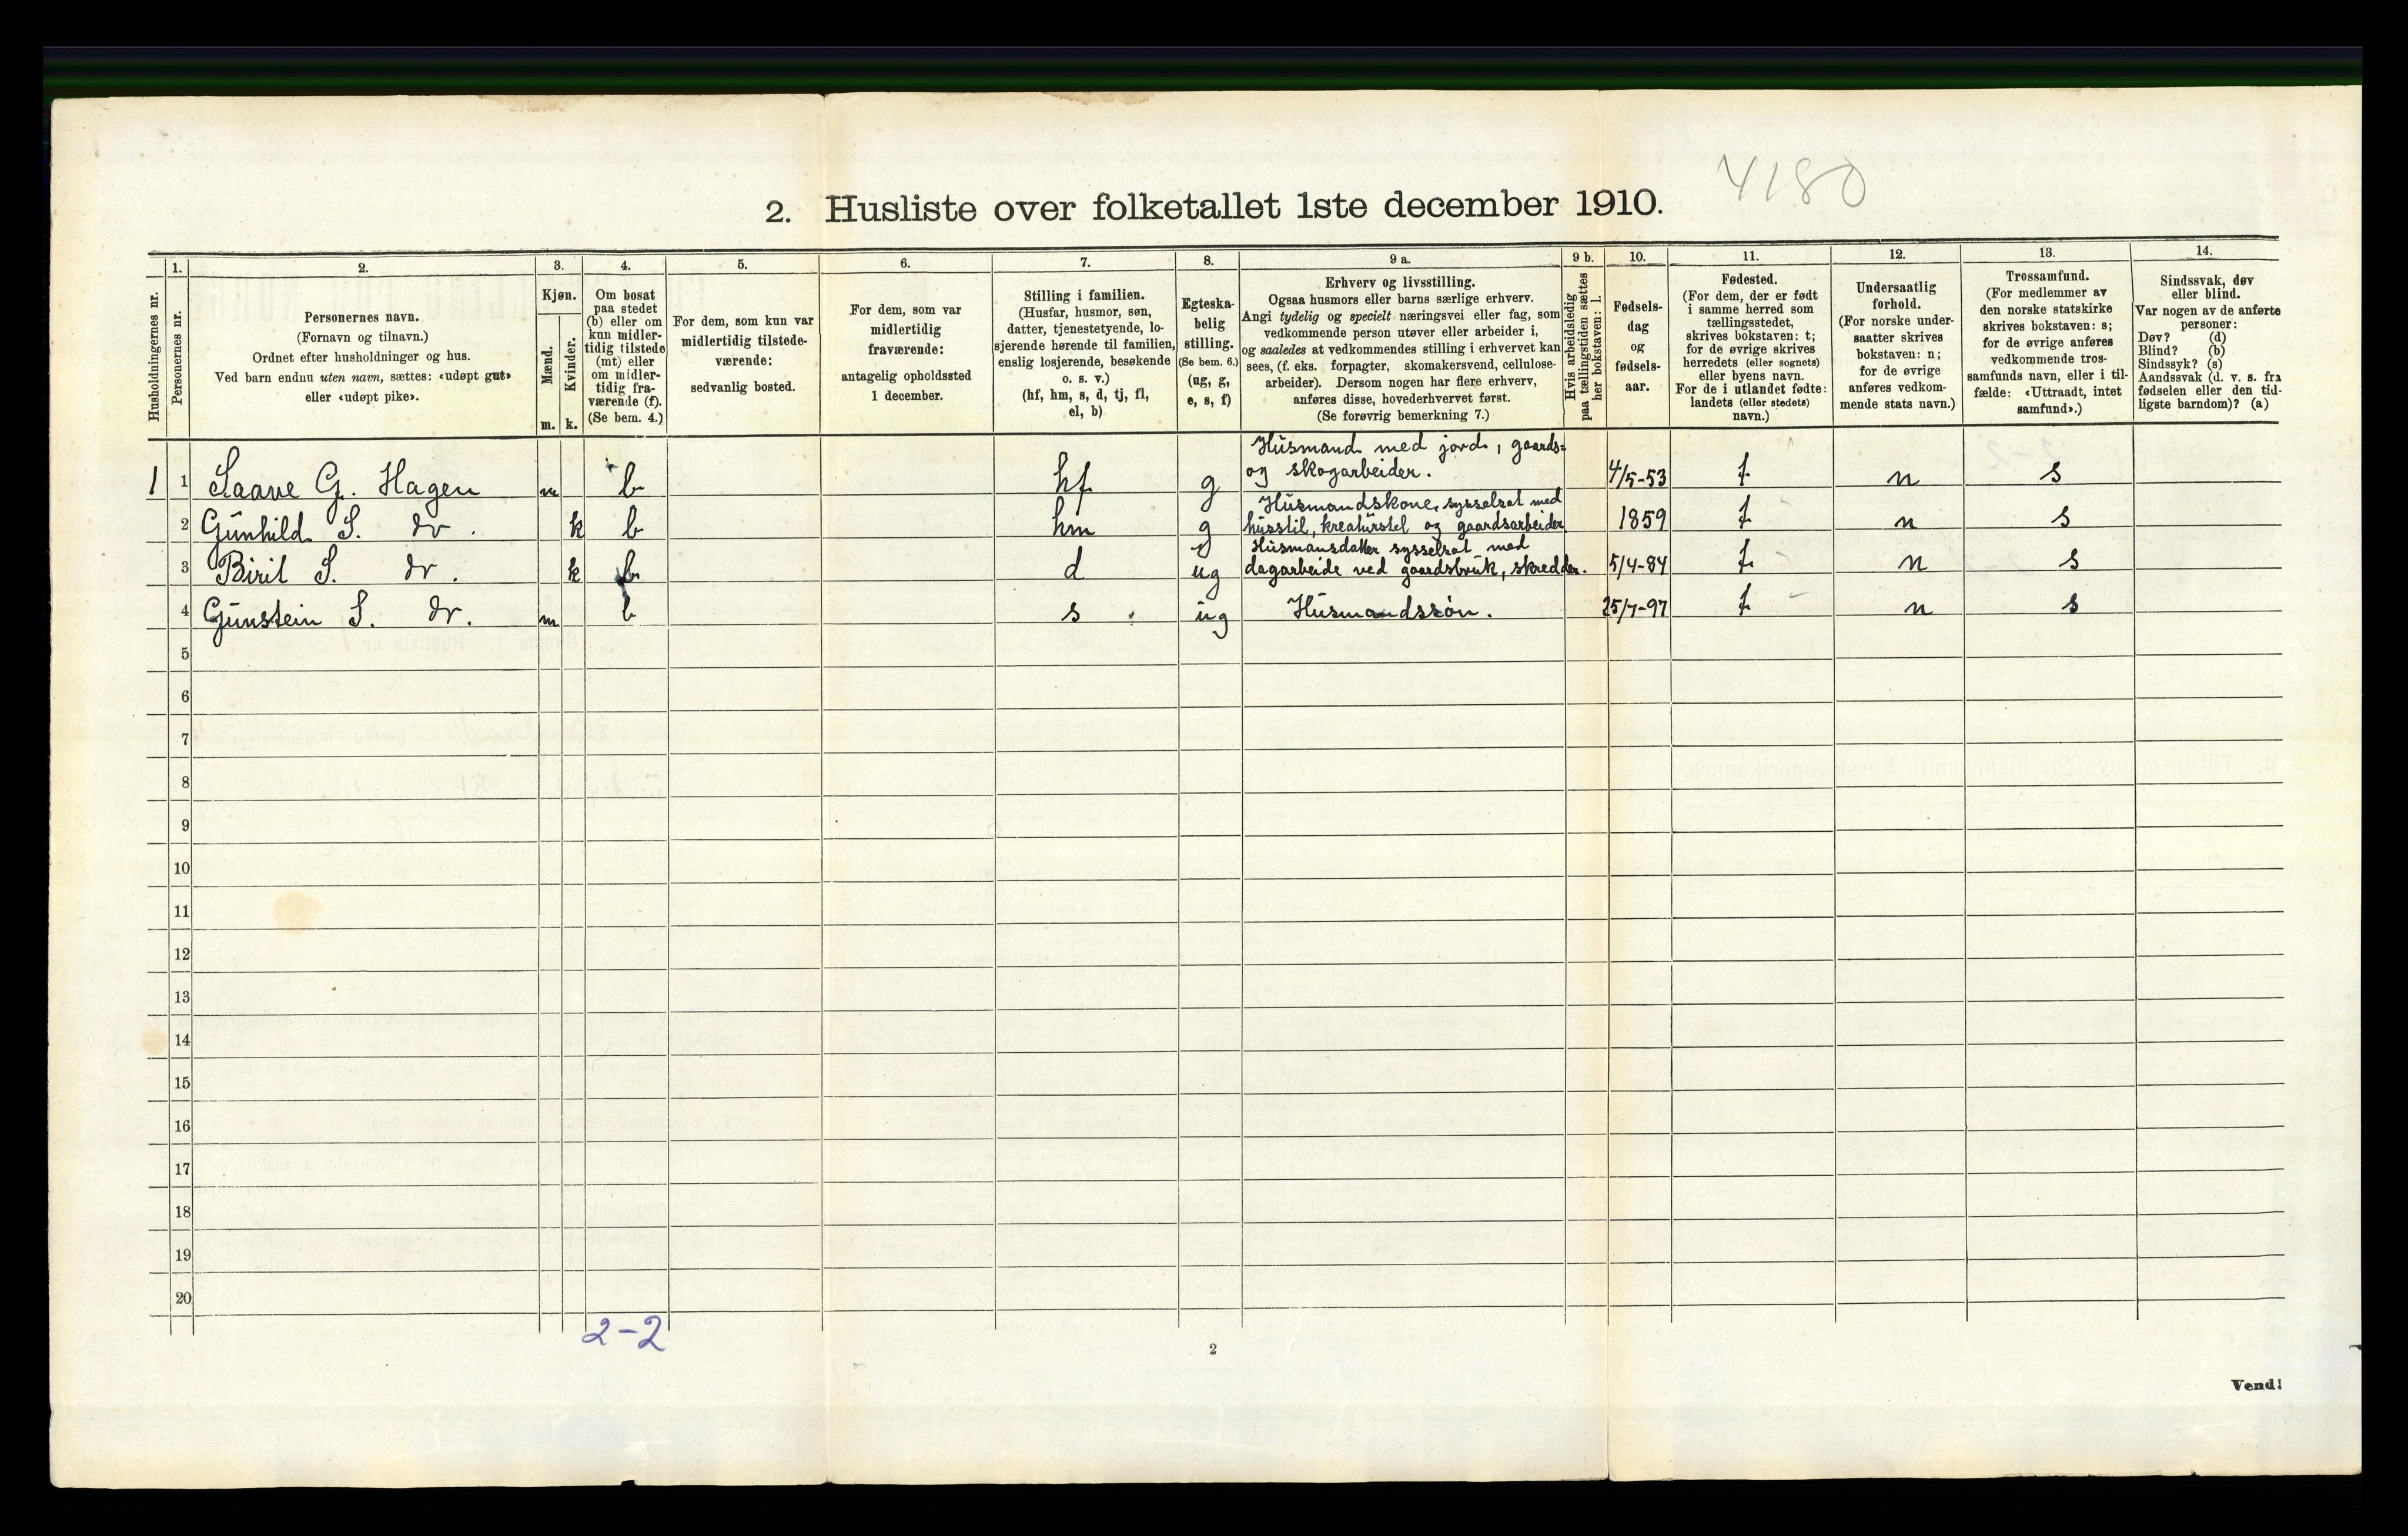 4180
2. Husliste over folketallet 1ste december 1910.
Husholdningernes nr.
1.
Personernes nr.
2.
Personernes navn.
(Fornavn og tilnavn.)
Ordnet efter husholdninger og hus.
Ved barn endnu uten navn, sættes: «udøpt gut»
eller «udøpt pike».
3.
Kjøn.
Mænd.
m.
Kvinder.
k.
4.
Om bosat
paa stedet
(b) eller om
kun midler-
tidig tilstede
(mt) eller
om midler-
tidig fra-
værende (f).
(Se bem. 4.)
5.
For dem, som kun var
midlertidig tilstede-
værende:
sedvanlig bosted.
6.
For dem, som var
midlertidig
fraværende:
antagelig opholdssted
1 december.
7.
Stilling i familien.
(Husfar, husmor, søn,
datter, tjenestetyende, lo-
sjerende hørende til familien,
enslig losjerende, besøkende
o. s. v.)
(hf, hm, s, d, tj, fl,
el, b)
8.
Egteska-
belig
stilling.
(Se bem. 6.)
(ug, g,
e, s, f)
9 a.
Erhverv og livsstilling.
Ogsaa husmors eller barns særlige erhverv.
Angi tydelig og specielt næringsvei eller fag, som
vedkommende person utøver eller arbeider i,
og saaledes at vedkommendes stilling i erhvervet kan
sees, (f. eks. forpagter, skomakersvend, cellulose-
arbeider). Dersom nogen har flere erhverv,
anføres disse, hovederhvervet først.
(Se forøvrig bemerkning 7.)
9 b.
Hvis arbeidsledig
paa tællingstiden sættes
her bokstaven: l.
10.
Fødsels-
dag
og
fødsels-
aar.
11.
Fødested.
(For dem, der er født
i samme herred som
tællingsstedet,
skrives bokstaven: t;
for de øvrige skrives
herredets (eller sognets)
eller byens navn.
For de i utlandet fødte:
landets (eller stedets)
navn.)
12.
Undersaatlig
forhold.
(For norske under-
saatter skrives
bokstaven: n;
for de øvrige
anføres vedkom-
mende stats navn.)
13.
Trossamfund.
(For medlemmer av
den norske statskirke
skrives bokstaven: s;
for de øvrige anføres
vedkommende tros-
samfunds navn, eller i til-
fælde: «Uttraadt, intet
samfund».)
14.
Sindssvak, døv
eller blind.
Var nogen av de anførte
personer:
Døv? (d)
Blind? (b)
Sindssyk? (s)
Aandssvak (d. v. s. fra
fødselen eller den tid-
ligste barndom)? (a)
Husmand med jord, gaards-
og skogarbeider.
1 1 Saave G. Hagen m b hf g 4/5-53 t n s
Husmandskone, sysselsat med
2 Gunhild S. do. k b hm g husstil, kreaturstel og gaardsarbeider 1859 t n s
Husmansdatter sysselsat med
3 Birit S. do. k b d ug dagarbeide ved gaardsbruk, skredder. 5/4-84 t n s
4 Gunstein S. do. m b s ug Husmandssøn. 25/7-97 t n s
5
6
7
8
9
10
11
12
13
14
15
16
17
18
19
20
2-2
2
Vend!